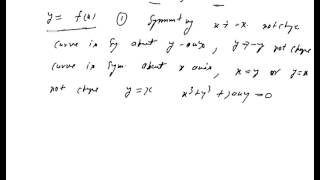 y = f(x) ① Symmetry x → -x not chnge
curve is Sy about y-axis, y → -y not chnge
curve is Sym about x axis, x = y or y = x
not chnge y = x x³ + y³ + 3axy = 0